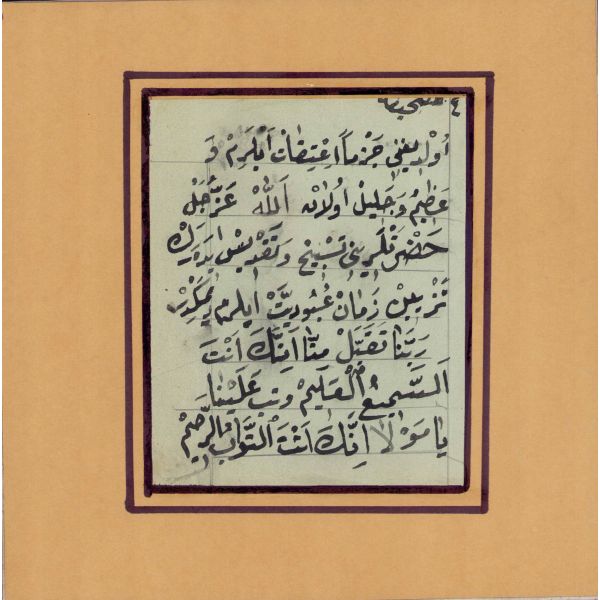 ٤
أوْلَديغني جَزْماً اِعْتِقَاتْ اَيْلَرِمْ وَ
عَظِيمُ وَجَلِيلْ اُولَانْ اَللّٰهْ عَزَّ جَلْ
حَضْرَتْلَرِينِي تَسْبِيحْ وَ تَقْدِيسْ اِيدَرَكْ
زَمَانْ عُبُودِيَّتْ اَيلرم
رَبَّنَا تَقَبَّلْ مِنَّا اِنَّكَ اَنْتَ
اَلسَّمِيعُ الْعَلِيمْ وَتُبْ عَلَيْنَا
يَا مَوْلَانَا اِنَّكَ اَنْتَ التَّوَّابُ الرَّحِيمْ